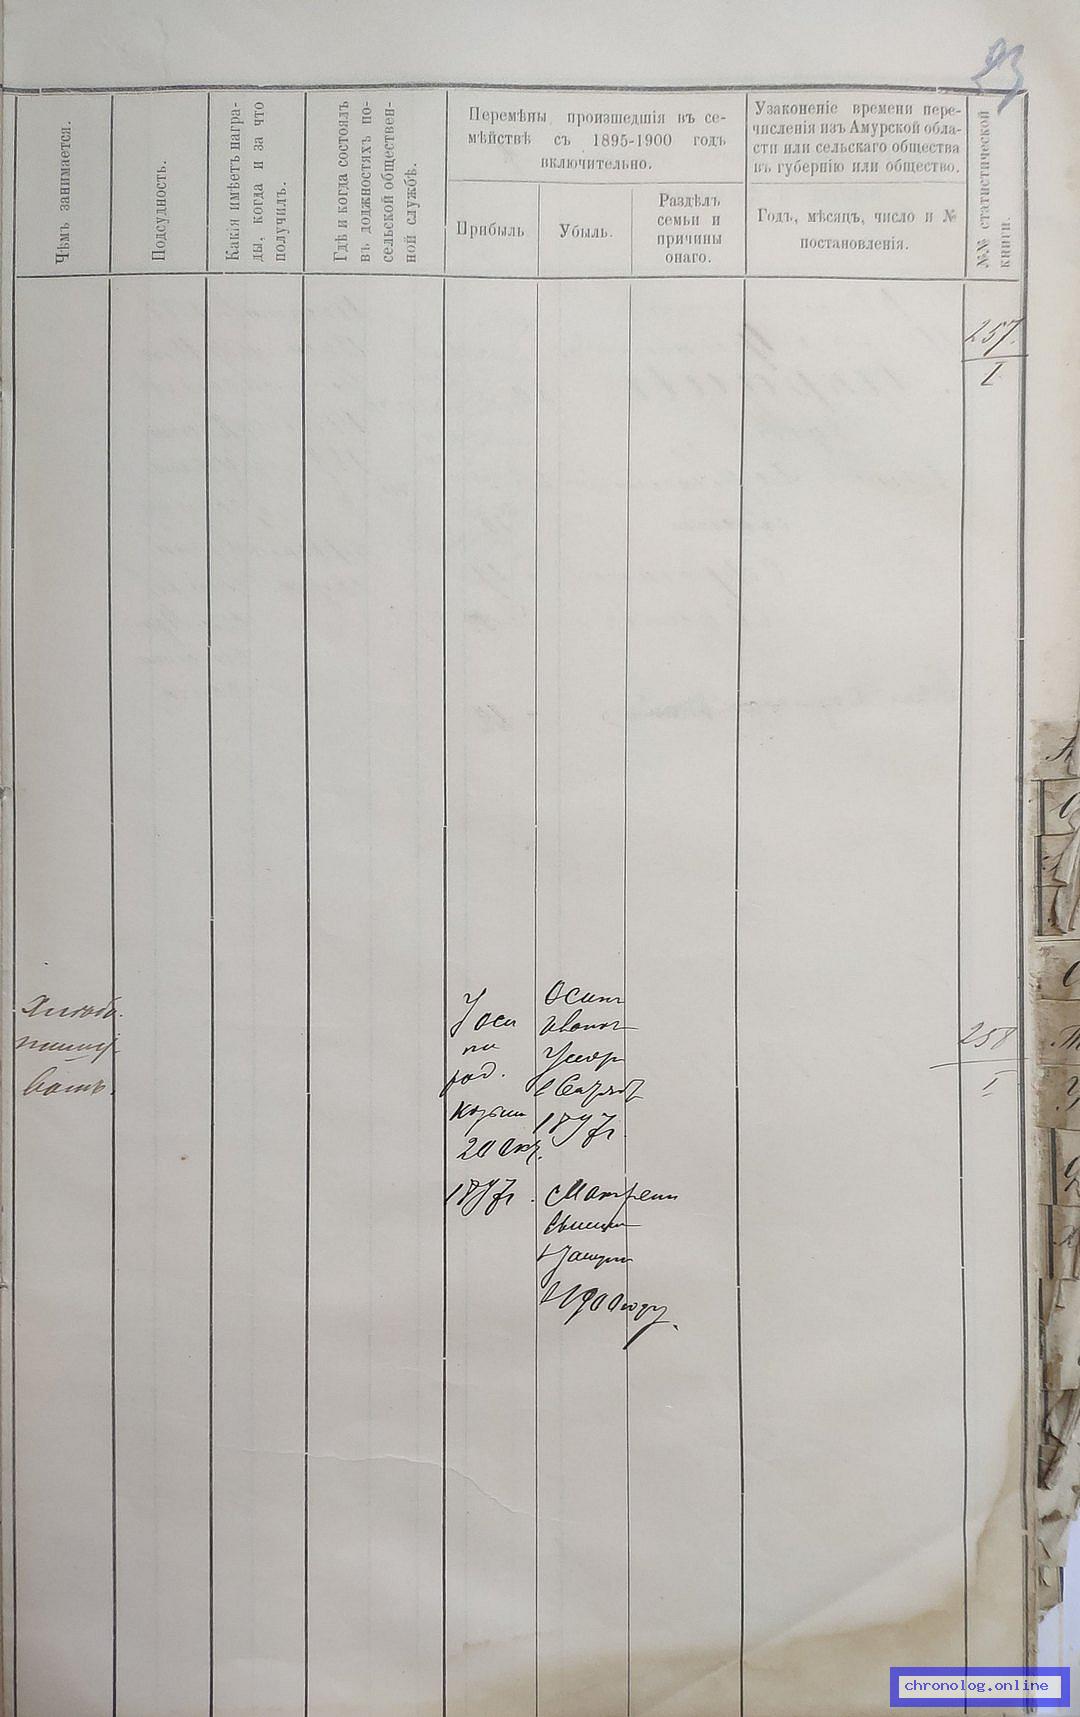 23
Чѣмъ занимается.
Подсудность.
Какія имѣетъ награ-
ды, когда и за что
получилъ.
Гдѣ и когда состоялъ
въ должностяхъ по-
сельской обществен-
ной службѣ.
Перемѣны происшедшія въ се-
мѣйствѣ съ 1895-1900 годъ
включительно.
Прибыль
Убыль.
Раздѣлъ
семьи и
причины
онаго.
Узаконеніе времени пере-
численія изъ Амурской обла-
сти или сельскаго общества
въ губернію или общество.
Годъ, мѣсяцъ, число и №
постановленія.
№№ статистической
книги.
257.
I
Хлѣбо-
пашес-
вомъ.
У Оси
па
род.
20 Окт.
1897г.
Осипъ
Иванов
Умер
1897г.
в 1900 году.
258
I
chronolog.online